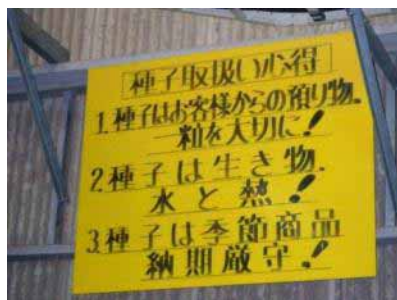 種子取扱い心得
1.種子はお客様からの預り物.
一粒を大切に!
2.種子は生き物.
水と熱!
3.種子は季節商品
納期厳守!